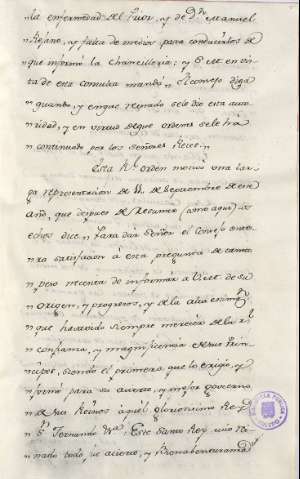 la enfermedad del Prior, y de Dn. Manuel
y falta de medios para conducirlos de
que informó la Chancilleria; y S. M. en vis-
ta de esta consulta mandó: El Consejo diga
quando, y en que reynado se le dió esta auto-
ridad, y en virtud de que ordenes se le há
continuado por los señores Reies.
Esta Rl. orden motivó una lar-
ga representacion de 11. de Septiembre de este
año, que despues de
echos dice Para dar Señor el Consejo ente-
ra satisfaccion á esta pregunta de
pero necesita de informar a V. M. de su
origen, y progresos, y de la alta estimacn.
que ha devido siempre merecer de la Rl.
confianza, y magnificencia de sus Prin-
cipes, siendo el primero que lo erigio, y
formó para su acierto, y mejor govierno
de sus Reinos aquel gloriosisimo Rey Dn.
Sn. Fernando Este Santo Rey
todo su acierto, y Bonabenturanza